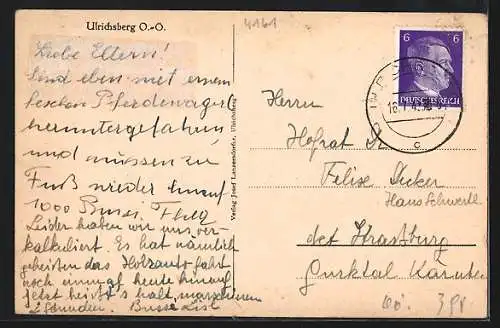 Ulrichsberg O.-Ö.
4161
Liebe Eltern!
Sind eben mit einem
feschen Pferdewagerl
heruntergefahren
und müssen zu
Fuß wieder hinauf
1000 Bussi
Leider haben wir uns ver-
kalkuliert. Es hat nämlich
geheißen das Holzauto fahrt
noch einmal heute hinauf,
jetzt heißt's halt marschieren
2 Stunden. Bussi
Verlag Josef Lanzersdorfer, Ulrichsberg
6
DEUTSCHES REICH
c
Herrn
Hofrat Dr.
Felix
Hans
Straßburg
Gurktal Kärnten